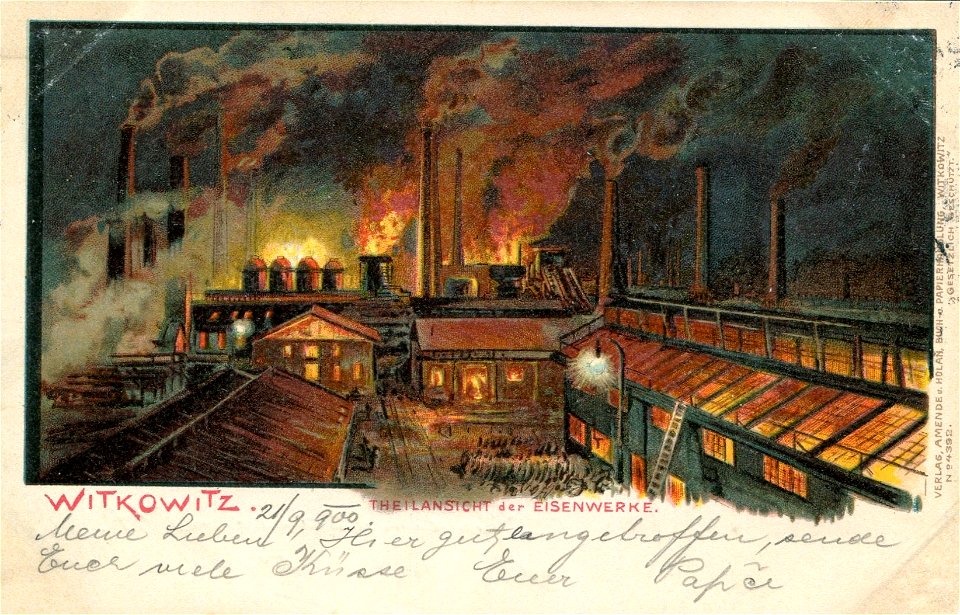 WITKOWITZ. 21/9 900
THEILANSICHT der EISENWERKE.
Meine Lieben, Hier gut angetroffen, sende
Euch viele Küsse Euer Papči
VERLAG, AMENDE u. HOLAŇ, BUCH- u. PAPIERHANDLUNG, WITKOWITZ
"GESETZLICH GESCHÜTZT."
No 4392.